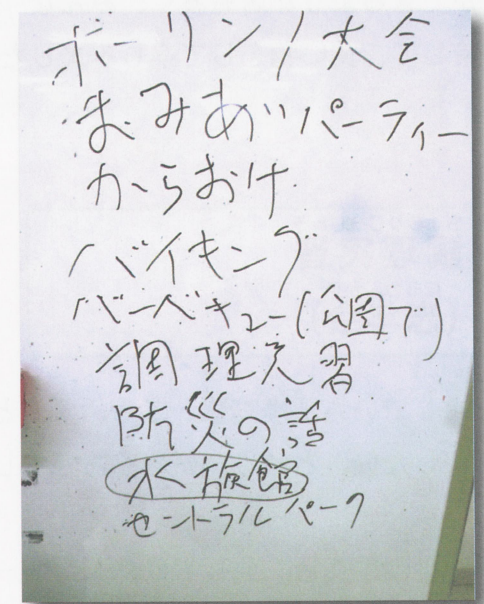 ボーリング大会
おみあいパーティー
からおけ
バイキング
バーベキュー(公園で)
調理実習
防災の話
水族館
セントラルパーク